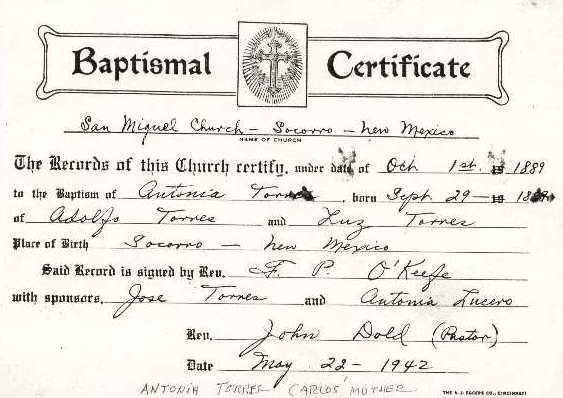 Baptismal Certificate
San Miguel Church - Socorro - New Mexico
NAME OF CHURCH
The Records of this Church certify, under date of Oct 1st. 19 1889
to the Baptism of Antonia Torres, born Sept. 29 - 19
of Adolfo Torres and Luz Torres
Place of Birth Socorro - New Mexico
Said Record is signed by Rev. F. P. O'Keefe
with sponsors, Jose Torres and Antonia Lucero
Rev. John Dold (Pastor)
Date May 22 - 1942
ANTONIA TORRES CARLOS' MOTHER
THE A. J. EGGERS CO., CINCINNATI